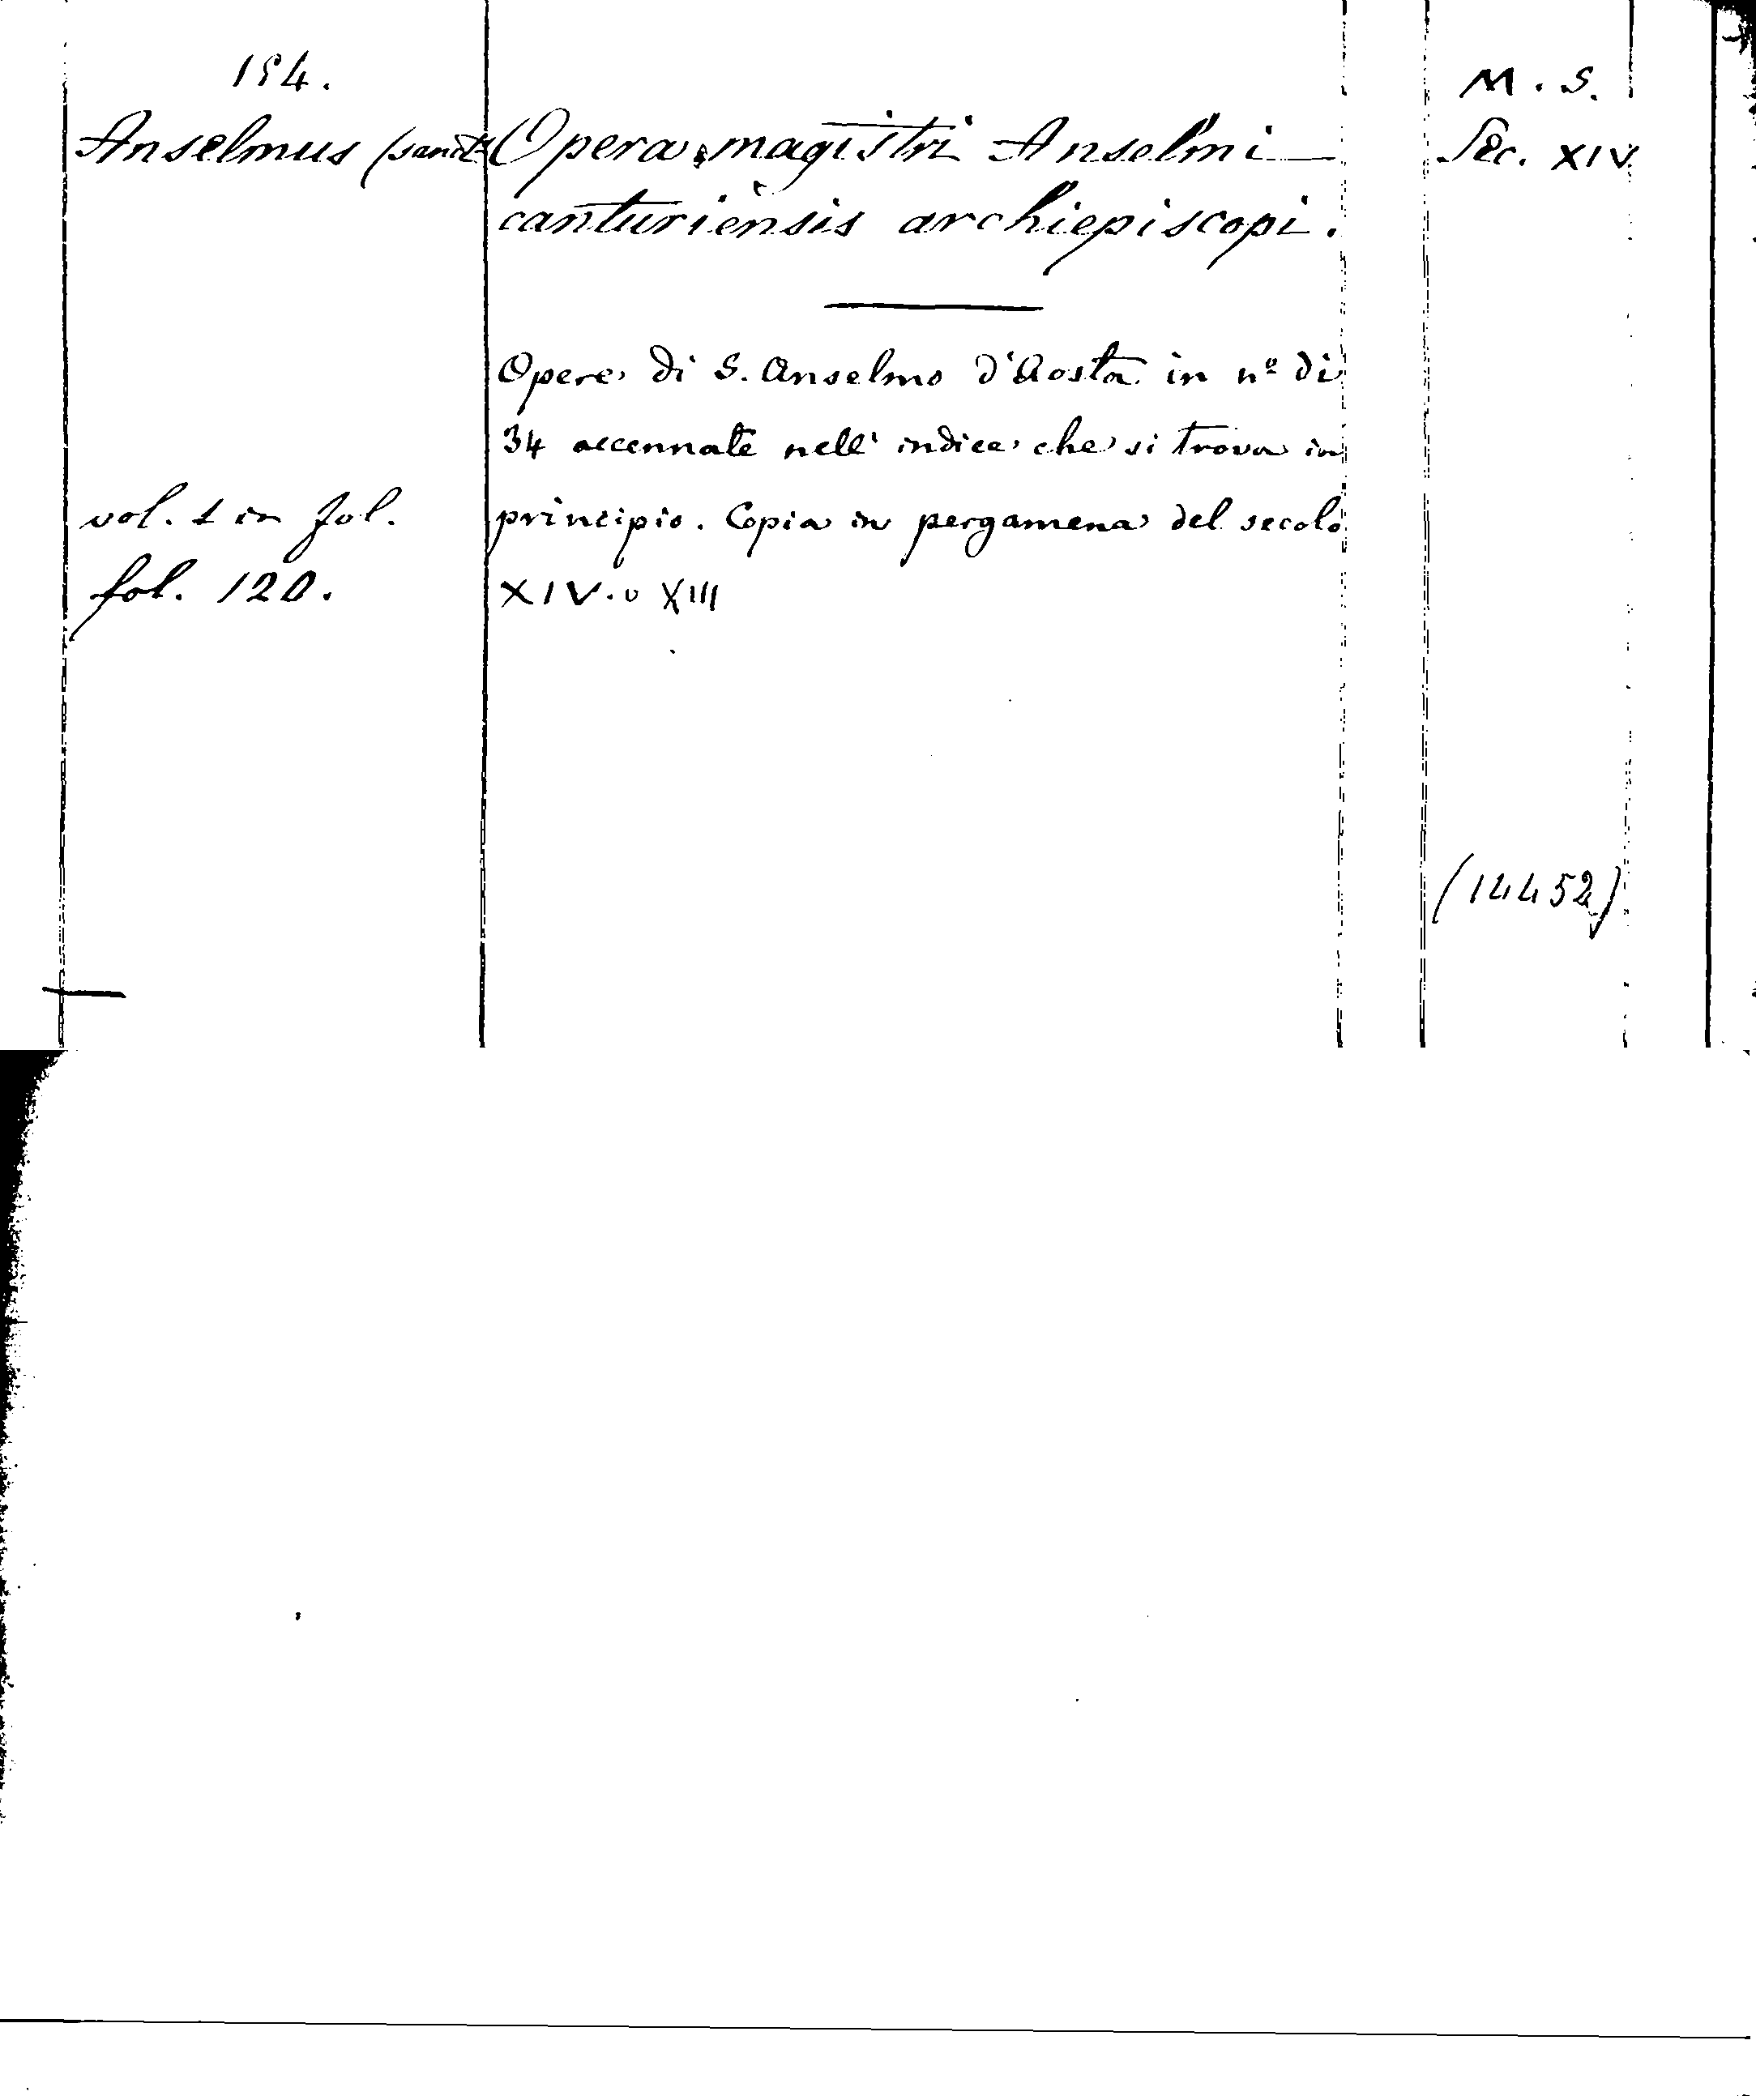 194.
Anselmus (sanct
Opera magistri Anselmi
canturiensis archiepiscopi.
Opere di S. Anselmo d'Aosta in nº di
34 accennate nell' indice che si trova in
principio. Copia in pergamena del secolo
XIV. o XIII
vol. 1 in fol.
fol. 120.
M. S.
Sec. XIV
(14452)